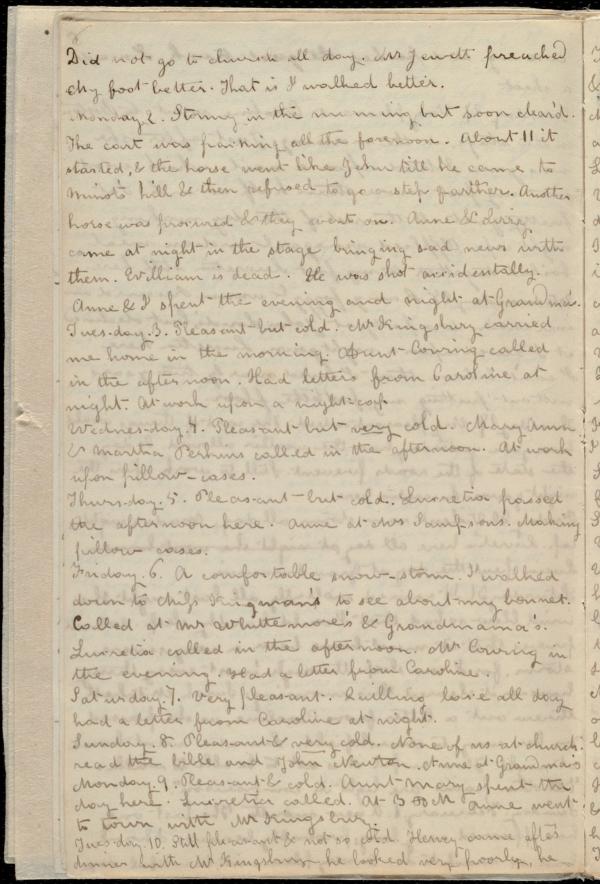 Did not go to church all day. Mr Jewett preached
My foot better. That is I walked better.
Monday. 2. Stormy in the morning but soon clear'd.
The cart was packing all the forenoon. About 11 it
started, & the horse went like Jehu till he came to
Minot's hill & then refused to go a step farther. Another
horse was procured & they went on. Anne &
came at night in the stage bringing sad news with
them. William is dead. He was shot accidentally.
Anne & I spent the evening and night at Grandma's.
Tues-day. 3. Pleasant but cold. Mr Kingsbury carried
me home in the morning. Aunt Cowing called
in the afternoon. Had letters from Caroline at
night. At work upon a night-cap
Wednes-day. 4. Pleasant but very cold. Mary Ann
& Martha Perkins called in the afternoon. At work
upon pillow-cases.
Thurs-day. 5. Pleas-ant but cold. Lucretia passed
the afternoon here. Anne at Mrs Sampsons. Making
pillow cases.
Friday. 6. A comfortable snow-storm. I walked
down to Kingman's to see about my bonnet.
Called at Mr Whittemore's & Grandmama's.
Lucretia called in the afternoon. Mr Cowing in
the evening. Had a letter from Caroline.
Saturday. 7. Very pleasant. Quilling lace all day
had a letter from Caroline at night.
Sunday. 8. Pleasant & very cold. None of us at church.
read the bible and John Newton. Anne at Grandma's
Monday. 9. Pleasant & cold. Aunt Mary spent the
day here. Lucretia called. At 3 PM Anne went
to town with Mr Kingsbury.
Tues-day. 10. Still pleas-ant & not so cold. Henry came after
dinner with Mr Kingsbury he looked very poorly, he